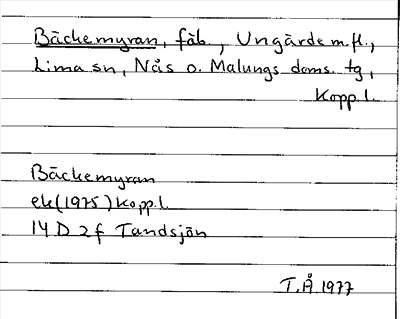 Bäckemyran, fäb., Ungärde m.fl.,
Lima sn, Nås o. Malungs doms. tg,
Kopp. l.
Bäckemyran
ek(1975) Kopp.l.
14 D 2f Tandsjön
T.Å 1977